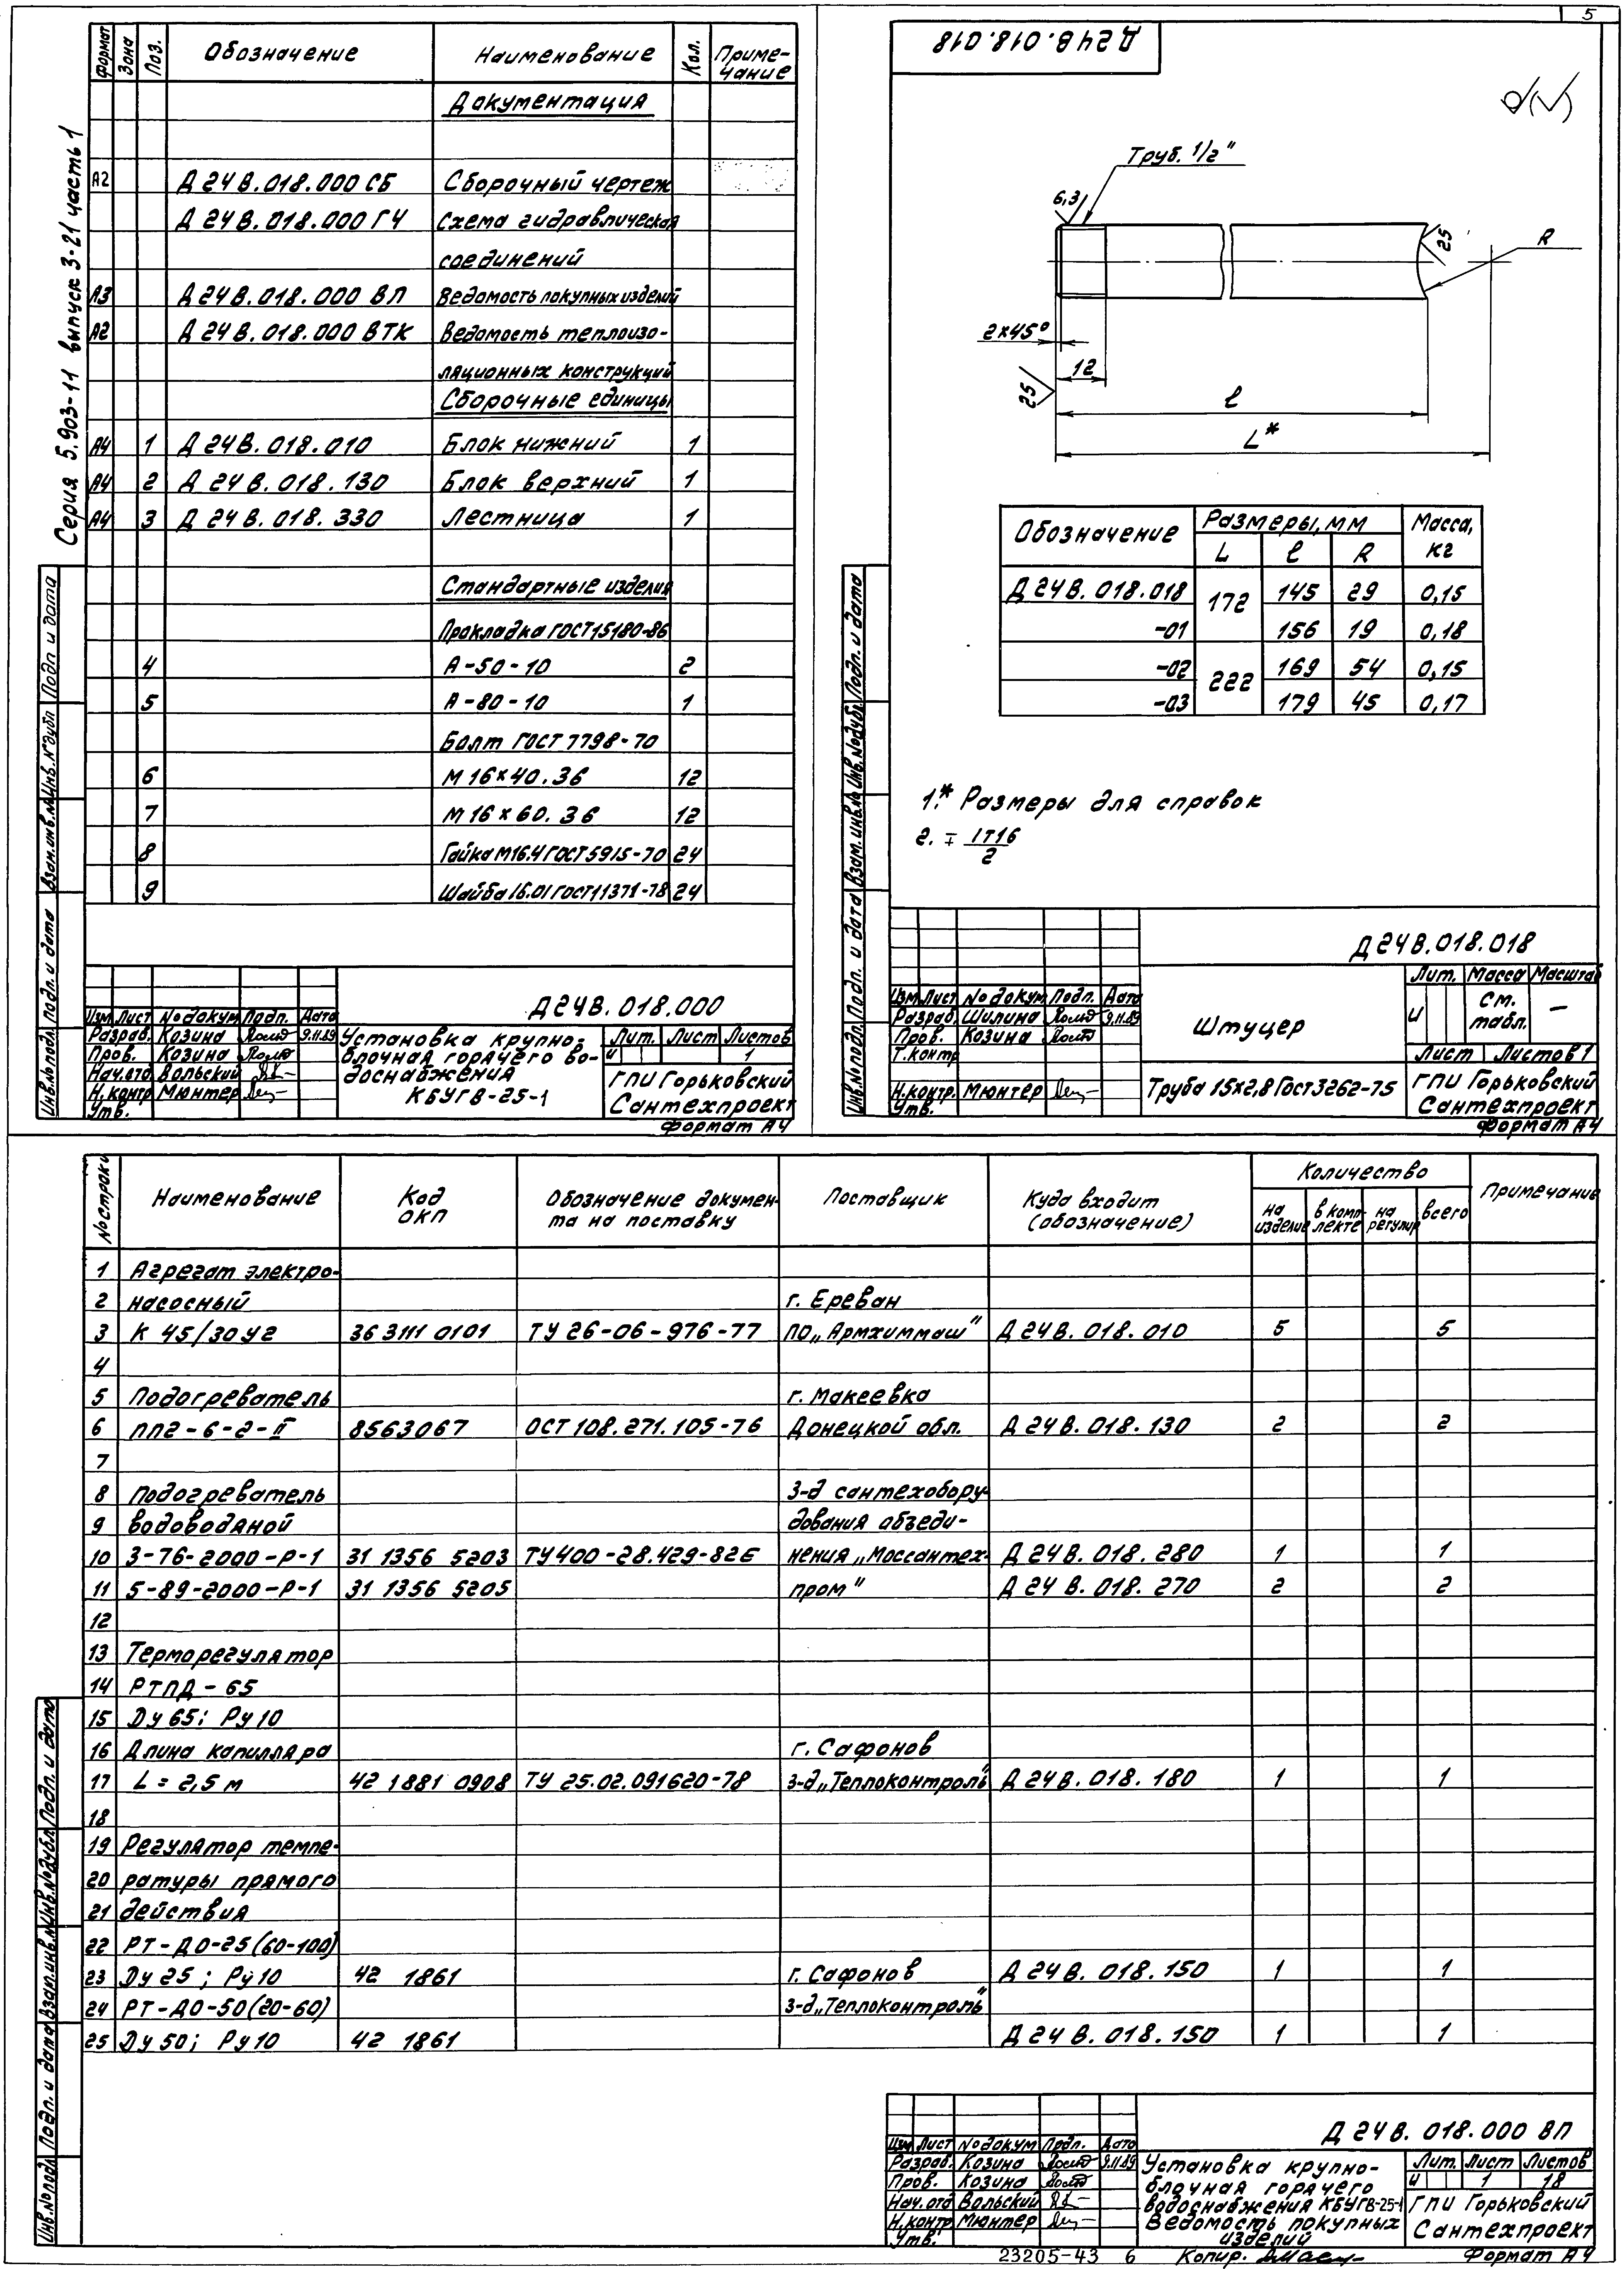 5
Серия 5.903-11 выпуск 3-21 часть 1
Формат Зона Поз. Обозначение Наименование Кол. Приме-
чание
Документация
А2 Д24В.018.000 СБ Сборочный чертеж
Д24В.018.000 ГЧ Схема гидравлическая
соединений
А3 Д24В.018.000 ВП Ведомость покупных изделий
А2 Д24В.018.000 ВТК Ведомость теплоизо-
ляционных конструкций
Сборочные единицы
А4 1 Д24В.018.010 Блок нижний 1
А4 2 Д24В.018.130 Блок верхний 1
А4 3 Д24В.018.330 Лестница 1
Стандартные изделия
Прокладка ГОСТ 15180-86
4 А-50-10 2
5 А-80-10 1
Болт ГОСТ 7798-70
6 М16×40.36 12
7 М16×60.36 12
8 Гайка М16.4 ГОСТ 5915-70 24
9 Шайба 16.01 ГОСТ 11371-78 24
Инв.№подл. Подп. и дата Взам.инв.№ Инв.№дубл Подп и дата
Д24В.018.000
Изм Лист №докум Подп. Дата
Разраб. Козина 9.11.89
Пров. Козина
Нач.отд Вольский
Н.контр Мюнтер
Утв.
Установка крупно-
блочная горячего во-
доснабжения
КБУГВ-25-1
Лит. Лист Листов
и 1
ГПИ Горьковский
Сантехпроект
Формат А4
Д24В.018.018
Труб. 1/2"
6,3
25
R
2×45°
12
25
ℓ
L*
Обозначение Размеры, мм Масса,
кг
L ℓ R
Д24В.018.018 172 145 29 0,15
-01 156 19 0,18
-02 222 169 54 0,15
-03 179 45 0,17
1.* Размеры для справок
2. ∓ IT16
2
Инв.№подл. Подп. и дата Взам.инв.№ Инв.№дубл. Подп. и дата
Д24В.018.018
Изм Лист №докум Подп. Дата
Разраб. Шилина 9.11.89
Пров. Козина
Т.контр
Н.контр. Мюнтер
Утв.
Штуцер
Лит. Масса Масштаб
и см.
табл. —
Лист Листов 1
Труба 15×2,8 ГОСТ 3262-75
ГПИ Горьковский
Сантехпроект
Формат А4
№строки Наименование Код
ОКП Обозначение докумен-
та на поставку Поставщик Куда входит
(обозначение) Количество Примечание
на
изделие в комп-
лекте на
регулир всего
1 Агрегат электро-
2 насосный г. Ереван
3 К 45/30У2 36 3111 0101 ТУ 26-06-976-77 ПО „Армхиммаш" Д24В.018.010 5 5
4
5 Подогреватель г. Макеевка
6 ПП2-6-2-II 8563067 ОСТ 108.271.105-76 Донецкой обл. Д24В.018.130 2 2
7
8 Подогреватель З-д сантехобору-
9 водоводяной дования объеди-
10 3-76-2000-Р-1 31 1356 5203 ТУ400-28.429-82Е нения „Моссантех- Д24В.018.280 1 1
11 5-89-2000-Р-1 31 1356 5205 пром" Д24В.018.270 2 2
12
13 Терморегулятор
14 РТПД-65
15 Dу 65; Ру 10
16 Длина капилляра г. Сафонов
17 L = 2,5 м 42 1881 0908 ТУ 25.02.091620-78 з-д „Теплоконтроль" Д24В.018.180 1 1
18
19 Регулятор темпе-
20 ратуры прямого
21 действия
22 РТ-ДО-25(60-100)
23 Dу 25; Ру 10 42 1861 г. Сафонов Д24В.018.150 1 1
24 РТ-ДО-50(20-60) з-д „Теплоконтроль"
25 Dу 50; Ру 10 42 1861 Д24В.018.150 1 1
Инв.№подл Подп. и дата Взам.инв.№ Инв.№дубл Подп. и дата
Д24В.018.000 ВП
Изм Лист №докум Подп. Дата
Разраб. Козина 9.11.89
Пров. Козина
Нач.отд Вольский
Н.контр Мюнтер
Утв.
Установка крупно-
блочная горячего
водоснабжения КБУГВ-25-1
Ведомость покупных
изделий
Лит. Лист Листов
и 1 18
ГПИ Горьковский
Сантехпроект
23205-43 6 Копир. Формат А4